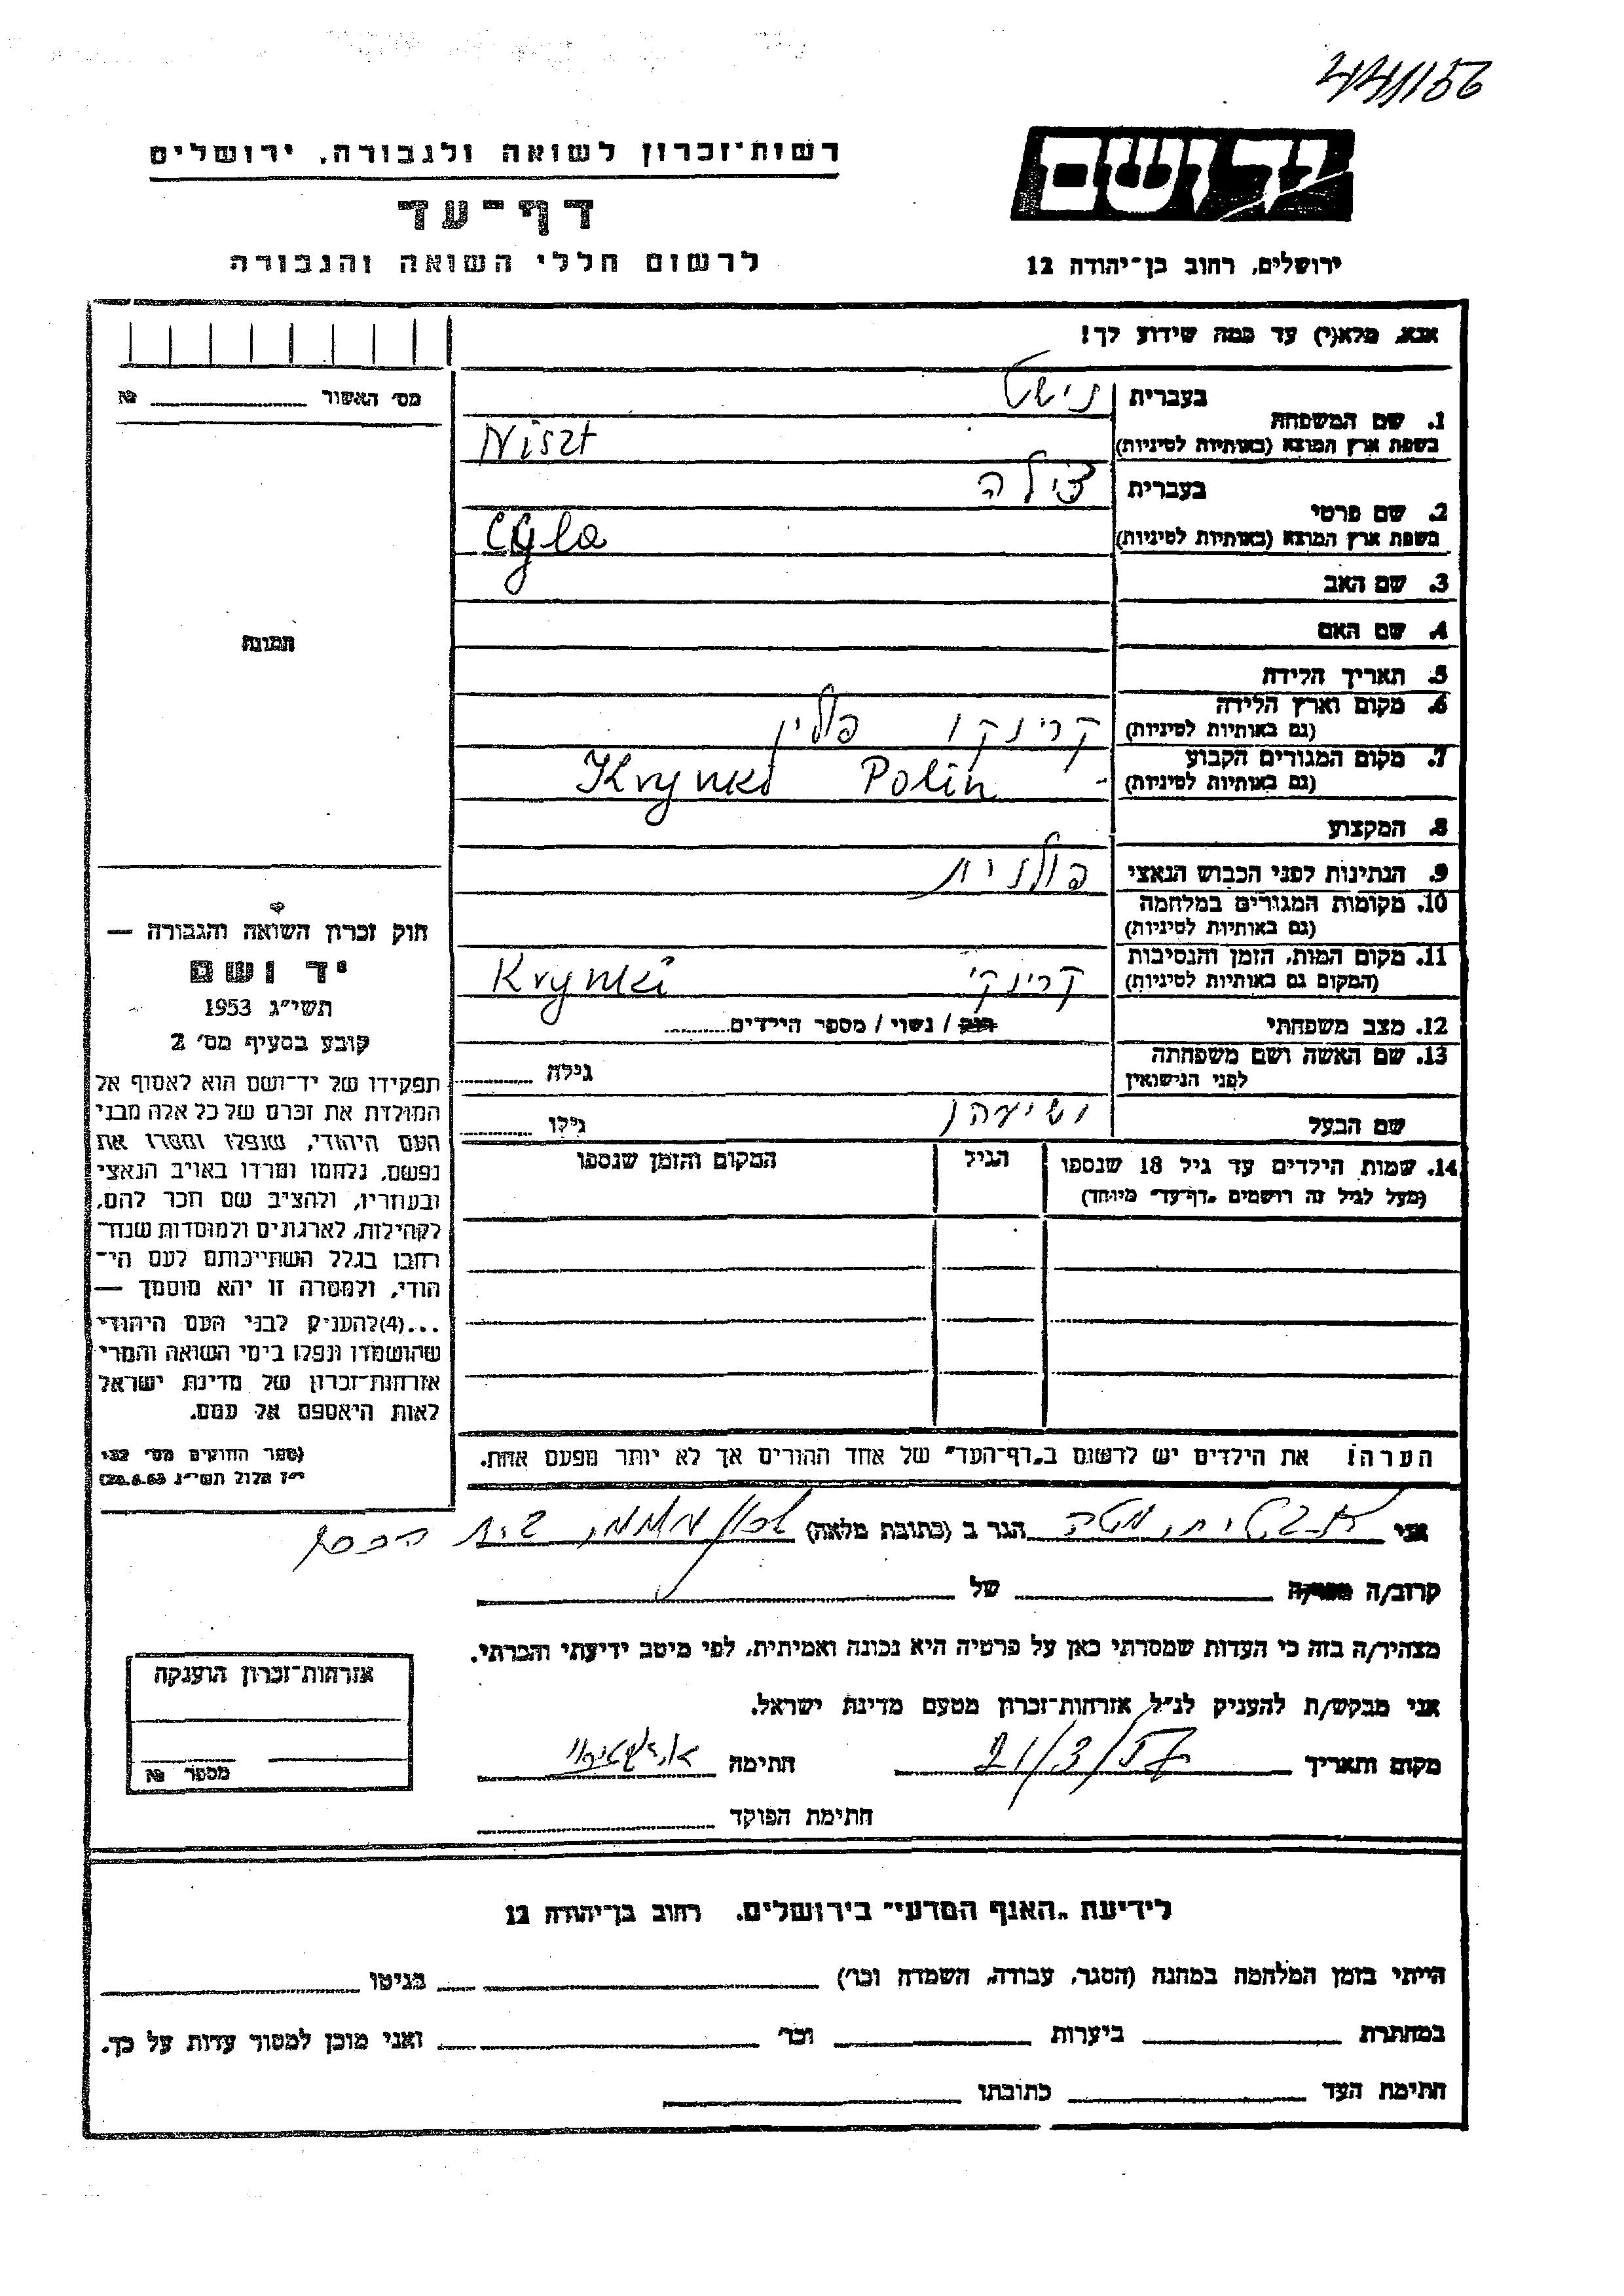 רשות־זכרון לשואה ולגבורה, ירושלים
יד ושם
דף־עד
לרשום חללי השואה והגבורה
ירושלים, רחוב בן־יהודה 12
אנא, מלא(י) עד כמה שידוע לך!
מס׳ האשור №
1. שם המשפחה
בעברית נישט
בשפת ארץ המוצא (באותיות לטיניות) Niszt
2. שם פרטי
בעברית צילה
בשפת ארץ המוצא (באותיות לטיניות) Cyla
3. שם האב
4. שם האם
תמונה
5. תאריך הלידה
6. מקום וארץ הלידה
(גם באותיות לטיניות) קרינקו פולין
7. מקום המגורים הקבוע
(גם באותיות לטיניות) Krynki Polin
8. המקצוע
9. הנתינות לפני הכבוש הנאצי פולנית
10. מקומות המגורים במלחמה
(גם באותיות לטיניות)
11. מקום המות, הזמן והנסיבות
(המקום גם באותיות לטיניות) קרינקי Krynki
12. מצב משפחתי רווק / נשוי / מספר הילדים
13. שם האשה ושם משפחתה
לפני הנישואין גילה
שם הבעל גילו
14. שמות הילדים עד גיל 18 שנספו
(מעל לגיל זה רושמים „דף־עד״ מיוחד)
הגיל
המקום והזמן שנספו
חוק זכרון השואה והגבורה —
יד ושם
תשי״ג 1953
קובע בסעיף מס׳ 2
תפקידו של יד־ושם הוא לאסוף אל
המולדת את זכרם של כל אלה מבני
העם היהודי, שנפלו ומסרו את
נפשם, נלחמו ומרדו באויב הנאצי
ובעוזריו, ולהציב שם וזכר להם,
לקהילות, לארגונים ולמוסדות שנח־
רבו בגלל השתייכותם לעם הי־
הודי, ולמטרה זו יהא מוסמך —
...(4)להעניק לבני העם היהודי
שהושמדו ונפלו בימי השואה והמרי
אזרחות־זכרון של מדינת ישראל
לאות היאספם אל עמם.
(ספר החוקים מס׳ 132
י״ז אלול תשי״ג 28.8.53)
הערה! את הילדים יש לרשום ב„דף־העד״ של אחד ההורים אך לא יותר מפעם אחת.
אני הגר ב (כתובת מלאה)
קרוב/ה מכר/ה של
מצהיר/ה בזה כי העדות שמסרתי כאן על פרטיה היא נכונה ואמיתית, לפי מיטב ידיעתי והכרתי.
אני מבקש/ת להעניק לנ״ל אזרחות־זכרון מטעם מדינת ישראל.
מקום ותאריך 21/3/57 חתימה
חתימת הפוקד
אזרחות־זכרון הוענקה
מספר №
לידיעת „האגף המדעי״ בירושלים, רחוב בן־יהודה 12
הייתי בזמן המלחמה במחנה (הסגר, עבודה, השמדה וכו׳) בגיטו
במחתרת ביערות וכו׳ ואני מוכן למסור עדות על כך.
חתימת העד כתובתו